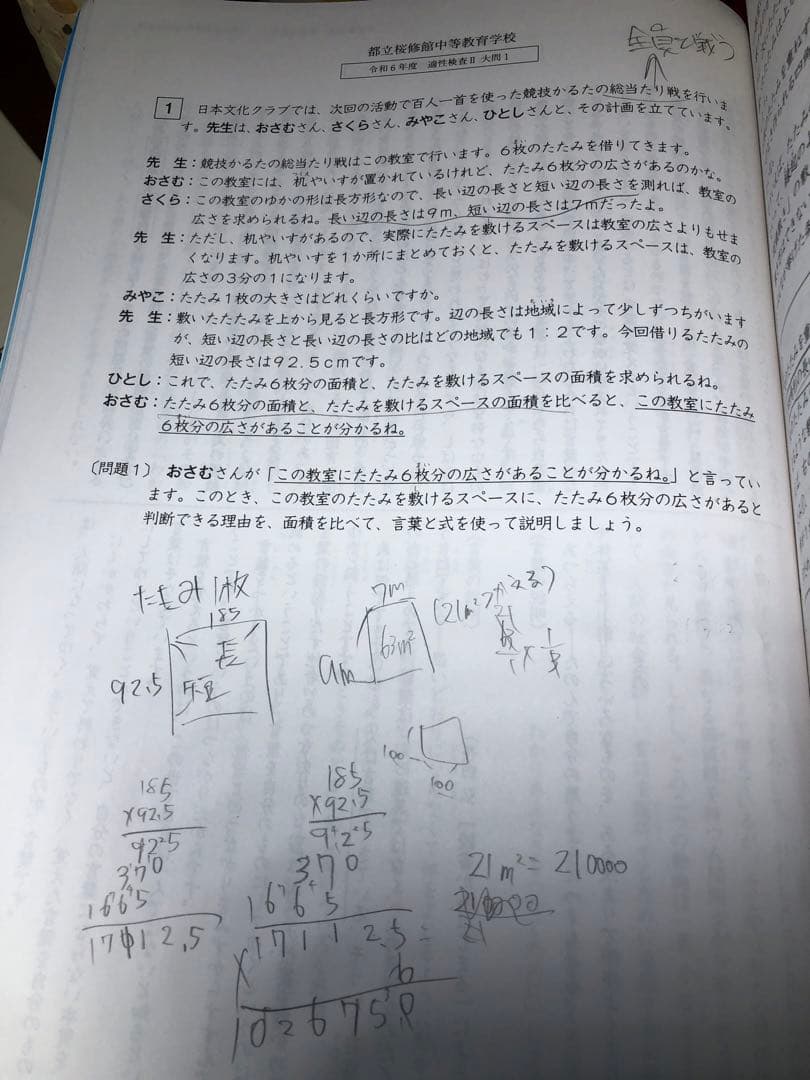 都立桜修館中等教育学校
令和6年度 適性検査Ⅱ 大問1
全員で戦う
1 日本文化クラブでは、次回の活動で百人一首を使った競技かるたの総当たり戦を行いま
す。先生は、おさむさん、さくらさん、みやこさん、ひとしさんと、その計画を立てています。
先 生：競技かるたの総当たり戦はこの教室で行います。6枚のたたみを借りてきます。
おさむ：この教室には、机やいすが置かれているけれど、たたみ6枚分の広さがあるのかな。
さくら：この教室のゆかの形は長方形なので、長い辺の長さと短い辺の長さを測れば、教室の
広さを求められるね。長い辺の長さは9m、短い辺の長さは7mだったよ。
先 生：ただし、机やいすがあるので、実際にたたみを敷けるスペースは教室の広さよりもせま
くなります。机やいすを1か所にまとめておくと、たたみを敷けるスペースは、教室の
広さの3分の1になります。
みやこ：たたみ1枚の大きさはどれくらいですか。
先 生：敷いたたたみを上から見ると長方形です。辺の長さは地域によって少しずつちがいます
が、短い辺の長さと長い辺の長さの比はどの地域でも1：2です。今回借りるたたみの
短い辺の長さは92.5cmです。
ひとし：これで、たたみ6枚分の面積と、たたみを敷けるスペースの面積を求められるね。
おさむ：たたみ6枚分の面積と、たたみを敷けるスペースの面積を比べると、この教室にたたみ
6枚分の広さがあることが分かるね。
〔問題1〕 おさむさんが「この教室にたたみ6枚分の広さがあることが分かるね。」と言ってい
ます。このとき、この教室のたたみを敷けるスペースに、たたみ6枚分の広さがあると
判断できる理由を、面積を比べて、言葉と式を使って説明しましょう。
たたみ1枚
185
長
92.5
短
7m
63m²
9m
(21m²つかえる)
21
100
100
185
×92.5
925
370
1665
17112.5
185
×92.5
925
370
1665
17112.5=
× 6
102675.0
21m²=210000
21